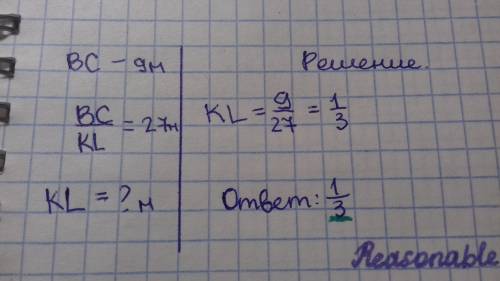 BC - 9м
BC/KL = 27м
KL = ? м
Решение.
KL = 9/27 = 1/3
Ответ: 1/3
Reasonable